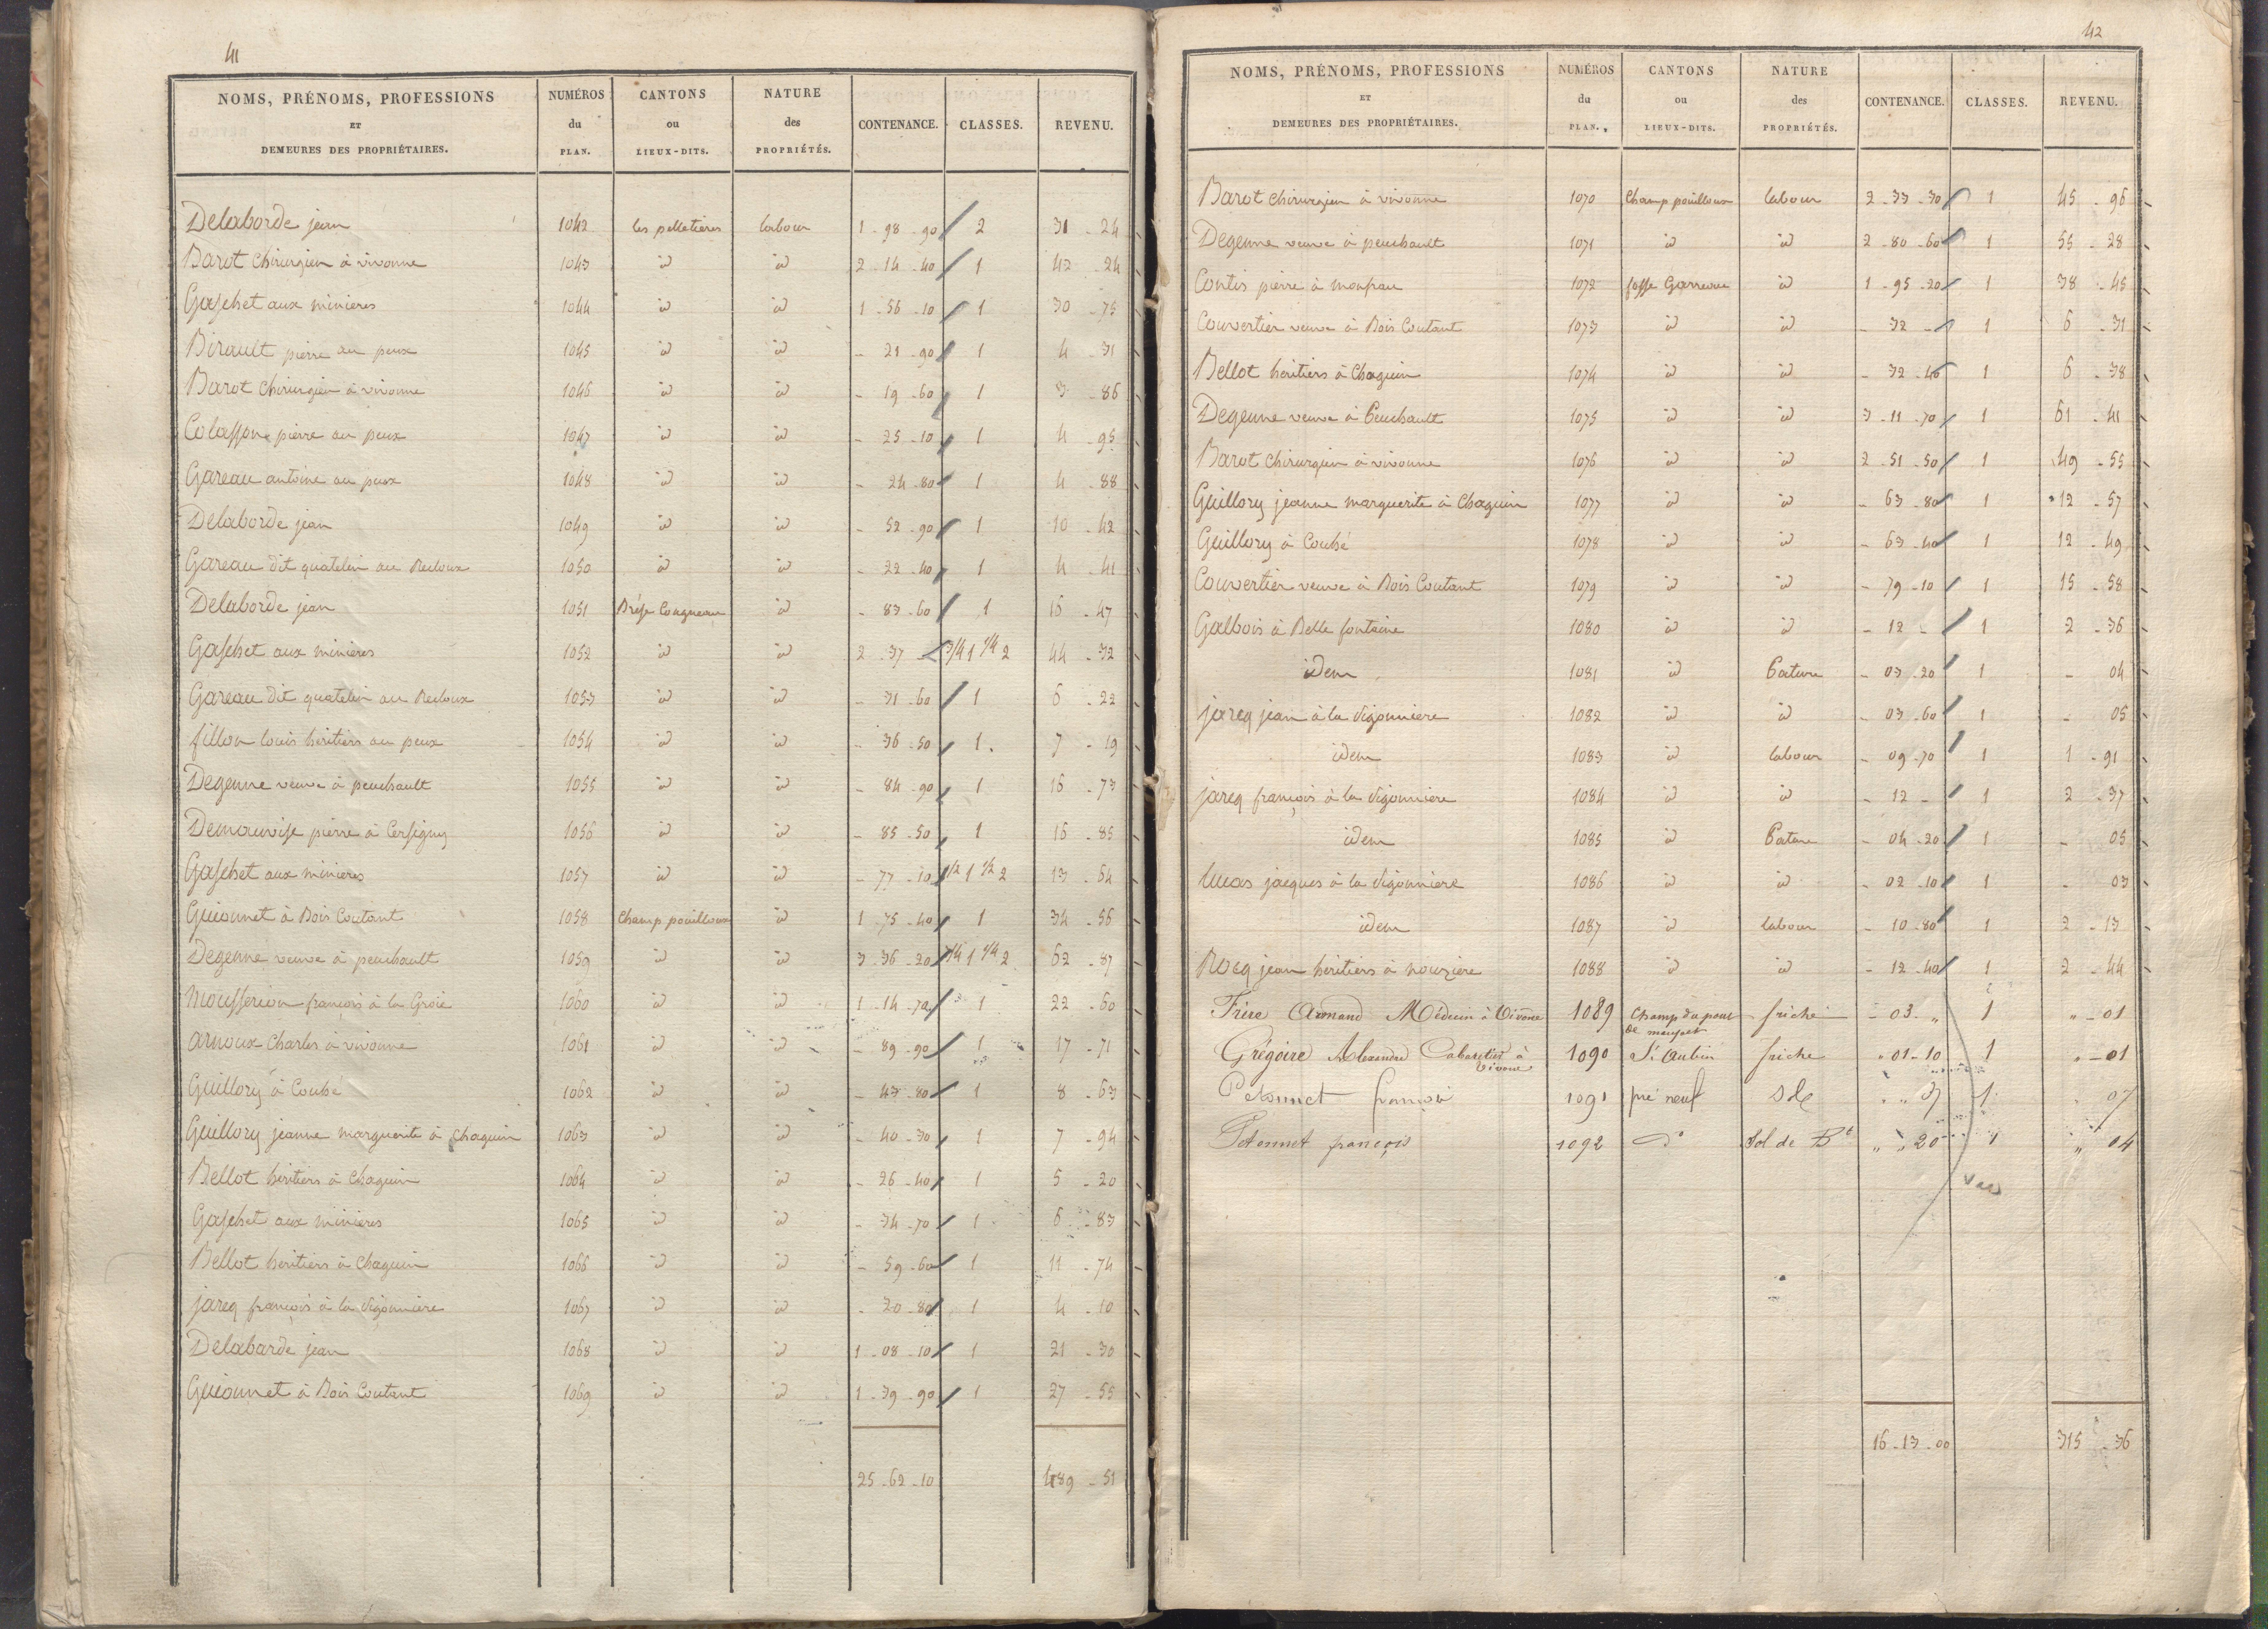 41
NOMS, PRÉNOMS, PROFESSIONS ET DEMEURES DES PROPRIÉTAIRES. NUMÉROS du PLAN. CANTONS ou LIEUX-DITS. NATURE des PROPRIÉTÉS. CONTENANCE. CLASSES. REVENU.
Delaborde jean 1042 les pelletieres labour 1 - 98 - 90 2 31 - 24
Barot chirurgien à vivonne 1043 id id 2 - 14 - 40 1 42 - 24
Gaschet aux minieres 1044 id id 1 - 56 - 10 1 30 - 75
Birault pierre au peux 1045 id id - 21 - 90 1 4 - 31
Barot chirurgien à vivonne 1046 id id - 19 - 60 1 3 - 86
Colasson pierre au peux 1047 id id - 25 - 10 1 4 - 95
Gareau antoine au peux 1048 id id - 24 - 80 1 4 - 88
Delaborde jean 1049 id id - 52 - 90 1 10 - 42
Gareau dit quatelin au Recloux 1050 id id - 22 - 40 1 4 - 41
Delaborde jean 1051 Brise Cougneau id - 83 - 60 1 16 - 47
Gaschet aux minieres 1052 id id 2 - 37 - 3/4 1 1/4 2 44 - 32
Gareau dit quatelin au Recloux 1053 id id - 31 - 60 1 6 - 22
fillon louis héritiers au peux 1054 id id - 36 - 50 1 7 - 19
Degenne veuve à peuchault 1055 id id - 84 - 90 1 16 - 73
Demauvise pierre à Cersigny 1056 id id - 85 - 50 1 16 - 85
Gaschet aux minieres 1057 id id - 77 - 10 1/2 1 1/2 2 13 - 64
Guionnet à Bois Coutant 1058 Champ pouilloux id 1 - 75 - 40 1 34 - 56
Degenne veuve à peuchault 1059 id id 3 - 36 - 20 3/4 1 1/4 2 62 - 87
Mousserion françois à la Groie 1060 id id 1 - 14 - 70 1 22 - 60
arnoux Charles à vivonne 1061 id id - 89 - 90 1 17 - 71
Guillory à Couhé 1062 id id - 43 - 80 1 8 - 63
Guillory jeanne marguerite à Chaguin 1063 id id - 40 - 30 1 7 - 94
Bellot héritiers à Chaguin 1064 id id - 26 - 40 1 5 - 20
Gaschet aux minieres 1065 id id - 34 - 70 1 6 - 83
Bellot héritiers à Chaguin 1066 id id - 59 - 60 1 11 - 74
jarcq françois à la vigonniere 1067 id id - 20 - 80 1 4 - 10
Delabarde jean 1068 id id 1 - 08 - 10 1 21 - 30
Guionnet à Bois Coutant 1069 id id 1 - 39 - 90 1 27 - 55
25 - 62 - 10 489 - 51
42
NOMS, PRÉNOMS, PROFESSIONS ET DEMEURES DES PROPRIÉTAIRES. NUMÉROS du PLAN. CANTONS ou LIEUX-DITS. NATURE des PROPRIÉTÉS. CONTENANCE. CLASSES. REVENU.
Barot chirurgien à vivonne 1070 Champ pouilloux labour 2 - 33 - 30 1 45 - 96
Degenne veuve à peuchault 1071 id id 2 - 80 - 60 1 55 - 28
Contis pierre à monpau 1072 fosse Garreone id 1 - 95 - 20 1 38 - 45
Couvertier veuve à Bois Coutant 1073 id id - 32 - 1 6 - 31
Bellot héritiers à Chaguin 1074 id id - 32 - 40 1 6 - 38
Degenne veuve à Peuchault 1075 id id 3 - 11 - 70 1 61 - 41
Barot chirurgien à vivonne 1076 id id 2 - 51 - 50 1 49 - 55
Guillory jeanne marguerite à Chaguin 1077 id id - 63 - 80 1 12 - 57
Guillory à Couhé 1078 id id - 63 - 40 1 12 - 49
Couvertier veuve à Bois Coutant 1079 id id - 79 - 10 1 15 - 58
Galbois à Belle fontaine 1080 id id - 12 - 1 2 - 36
idem 1081 id Pature - 03 - 20 1 - 04
jarcq jean à la vigonniere 1082 id id - 03 - 60 1 - 05
idem 1083 id labour - 09 - 70 1 1 - 91
jarcq françois à la vigonniere 1084 id id - 12 - 1 2 - 37
idem 1085 id Pature - 04 - 20 1 - 05
lucas jacques à la vigonniere 1086 id id - 02 - 10 1 - 03
idem 1087 id labour - 10 - 80 1 2 - 13
Rocq jean héritiers à nouziere 1088 id id - 12 - 40 1 2 - 44
Frére Armand Médecin à Vivonne 1089 Champ du pont de friche - 03 - „ 1 „ - 01
Grégoire Alexandre Cabaretier à Vivonne 1090 St aubin friche „ 01 - 10 1 „ - 01
Petonnet françois 1091 pré neuf Sol „ „ 37 1 „ 07
Petonnet françois 1092 do Sol de Bt „ „ 20 1 „ 04
16 - 13 - 00 315 - 36